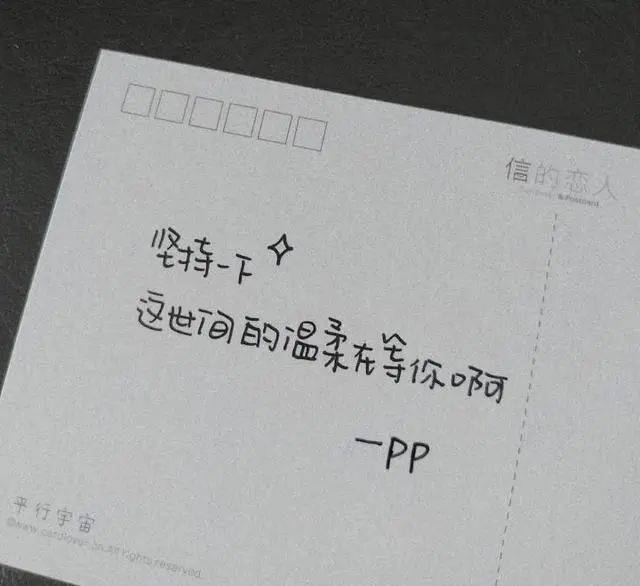 信的恋人
& Postcard
坚持一下
这世间的温柔在等你啊
—PP
平行宇宙
©www.cardlover.cn.All rights reserved.